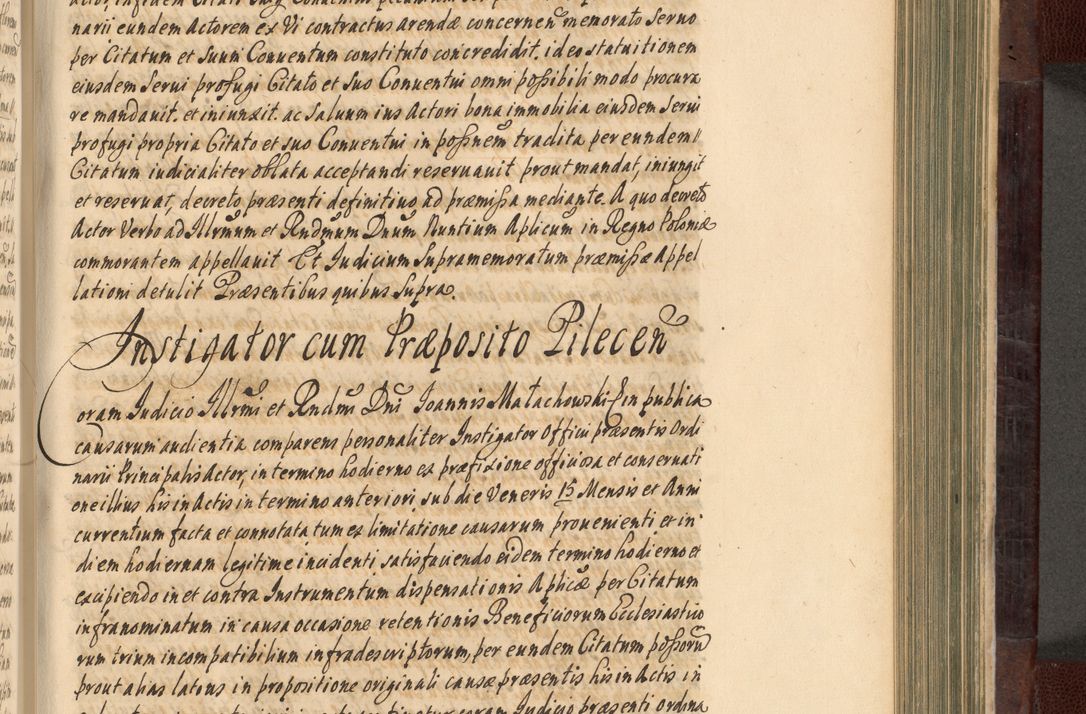 narii eundem Actorem ex Vi contractus arendæ concernen memorato servo
per Citatum et suum Conventum constituto concredidit. ideo statuitionem
eiusdem Servi profugi Citato et suo Conventui omni possibili modo procura
re mandavit. et iniunxit. ac salvum ius Actori bona immobilia eiusdem servi
profugi propria Citato et suo Conventui in possnem tradita per eundem //
Citatum iudicialiter oblata acceptandi reservavit prout mandat, iniungit
et reservat, decreto præsenti definitivo ad præmissa mediante. A quo decreto
Actor Verbo ad Illrmum et Rndmum Dnum Nuntium Aplicum in Regno Poloniæ
commorantem appellavit Et Iudicium supramemoratum præmissæ Appel
lationi detulit Præsentibus quibus supra.
Instigator cum Præposito Pilecen
Coram Iudicio Illrmi et Rndmi Dni Ioannis Małachowski E in publica
causarum audientia comparens personaliter Instigator Officii præsentis Ordi
narii Principalis Actor, in termino hodierno ex præfixione officiosa et conservati
one illius his in Actis in termino anteriori sub die Veneris 15 Mensis et Anni
currentium facta et connotata tum ex limitatione causarum provenienti et in
diem hodiernam legitime incidenti satisfaciendo eidem termino hodierno et
excipiendo in et contra Instrumentum dispensationis Aplicæ per Citatum
infranominatum in causa occasione retentionis Beneficiorum Ecclesiastico
rum trium incompatibilium infradescriptorum, per eundem Citatum possoru
prout alias latius in propositione originali causæ præsentis his in Actis in